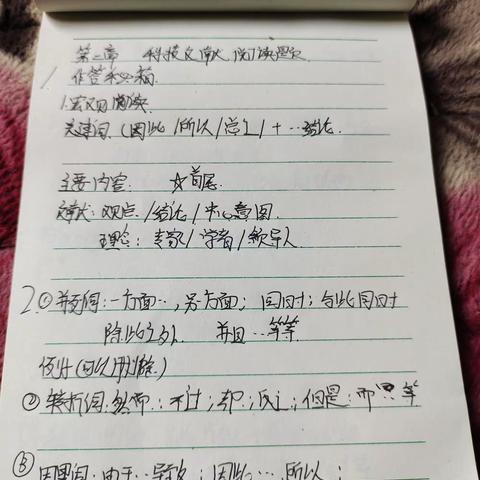 第二章 科技文献阅读题
作答秘籍
1.宏观阅读
关键词(因此/所以/总之/+…结论.
主要内容: ☆首尾.
文献:观点/结论/中心意图
理念:专家/学者/领导人
2.①并列词:一方面…,另方面;同时;与此同时
除此之外. 并且…等等.
例外(可以删除)
②转折词:然而;不过;却;反之;但是;而 等
③因果词:由于…导致;因此…,所以;